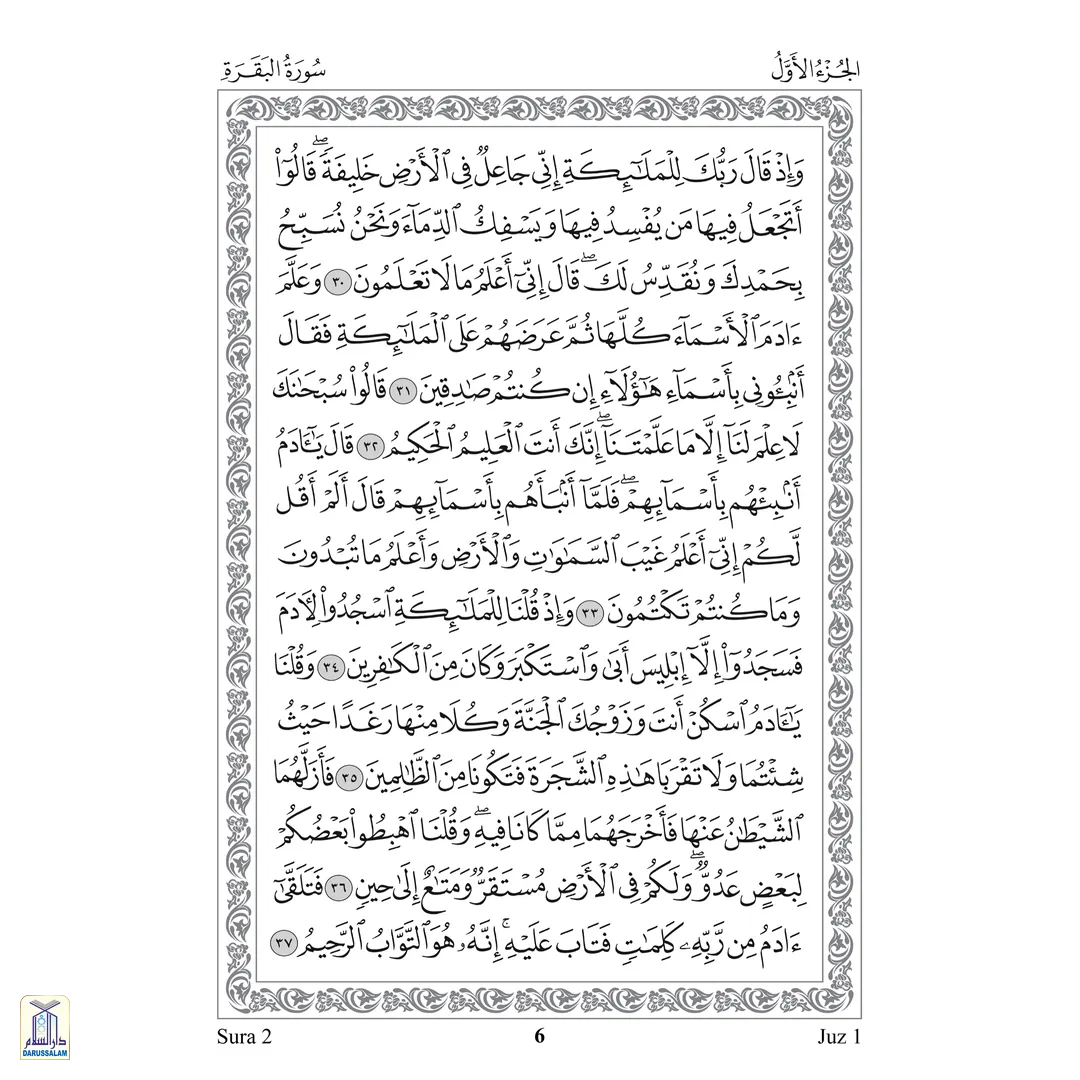 الجُزْءُ الأَوَّلُ
سُورَةُ البَقَرَةِ
وَإِذْ قَالَ رَبُّكَ لِلْمَلَٰٓئِكَةِ إِنِّى جَاعِلٌ فِى ٱلْأَرْضِ خَلِيفَةً ۖ قَالُوٓا۟
أَتَجْعَلُ فِيهَا مَن يُفْسِدُ فِيهَا وَيَسْفِكُ ٱلدِّمَآءَ وَنَحْنُ نُسَبِّحُ
بِحَمْدِكَ وَنُقَدِّسُ لَكَ ۖ قَالَ إِنِّىٓ أَعْلَمُ مَا لَا تَعْلَمُونَ ٣٠ وَعَلَّمَ
ءَادَمَ ٱلْأَسْمَآءَ كُلَّهَا ثُمَّ عَرَضَهُمْ عَلَى ٱلْمَلَٰٓئِكَةِ فَقَالَ
أَنۢبِـُٔونِى بِأَسْمَآءِ هَٰٓؤُلَآءِ إِن كُنتُمْ صَٰدِقِينَ ٣١ قَالُوا۟ سُبْحَٰنَكَ
لَا عِلْمَ لَنَآ إِلَّا مَا عَلَّمْتَنَآ ۖ إِنَّكَ أَنتَ ٱلْعَلِيمُ ٱلْحَكِيمُ ٣٢ قَالَ يَٰٓـَٔادَمُ
أَنۢبِئْهُم بِأَسْمَآئِهِمْ ۖ فَلَمَّآ أَنۢبَأَهُم بِأَسْمَآئِهِمْ قَالَ أَلَمْ أَقُل
لَّكُمْ إِنِّىٓ أَعْلَمُ غَيْبَ ٱلسَّمَٰوَٰتِ وَٱلْأَرْضِ وَأَعْلَمُ مَا تُبْدُونَ
وَمَا كُنتُمْ تَكْتُمُونَ ٣٣ وَإِذْ قُلْنَا لِلْمَلَٰٓئِكَةِ ٱسْجُدُوا۟ لِـَٔادَمَ
فَسَجَدُوٓا۟ إِلَّآ إِبْلِيسَ أَبَىٰ وَٱسْتَكْبَرَ وَكَانَ مِنَ ٱلْكَٰفِرِينَ ٣٤ وَقُلْنَا
يَٰٓـَٔادَمُ ٱسْكُنْ أَنتَ وَزَوْجُكَ ٱلْجَنَّةَ وَكُلَا مِنْهَا رَغَدًا حَيْثُ
شِئْتُمَا وَلَا تَقْرَبَا هَٰذِهِ ٱلشَّجَرَةَ فَتَكُونَا مِنَ ٱلظَّٰلِمِينَ ٣٥ فَأَزَلَّهُمَا
ٱلشَّيْطَٰنُ عَنْهَا فَأَخْرَجَهُمَا مِمَّا كَانَا فِيهِ ۖ وَقُلْنَا ٱهْبِطُوا۟ بَعْضُكُمْ
لِبَعْضٍ عَدُوٌّ ۖ وَلَكُمْ فِى ٱلْأَرْضِ مُسْتَقَرٌّ وَمَتَٰعٌ إِلَىٰ حِينٍ ٣٦ فَتَلَقَّىٰٓ
ءَادَمُ مِن رَّبِّهِۦ كَلِمَٰتٍ فَتَابَ عَلَيْهِ ۚ إِنَّهُۥ هُوَ ٱلتَّوَّابُ ٱلرَّحِيمُ ٣٧
Sura 2
6
Juz 1
دار السلام
DARUSSALAM